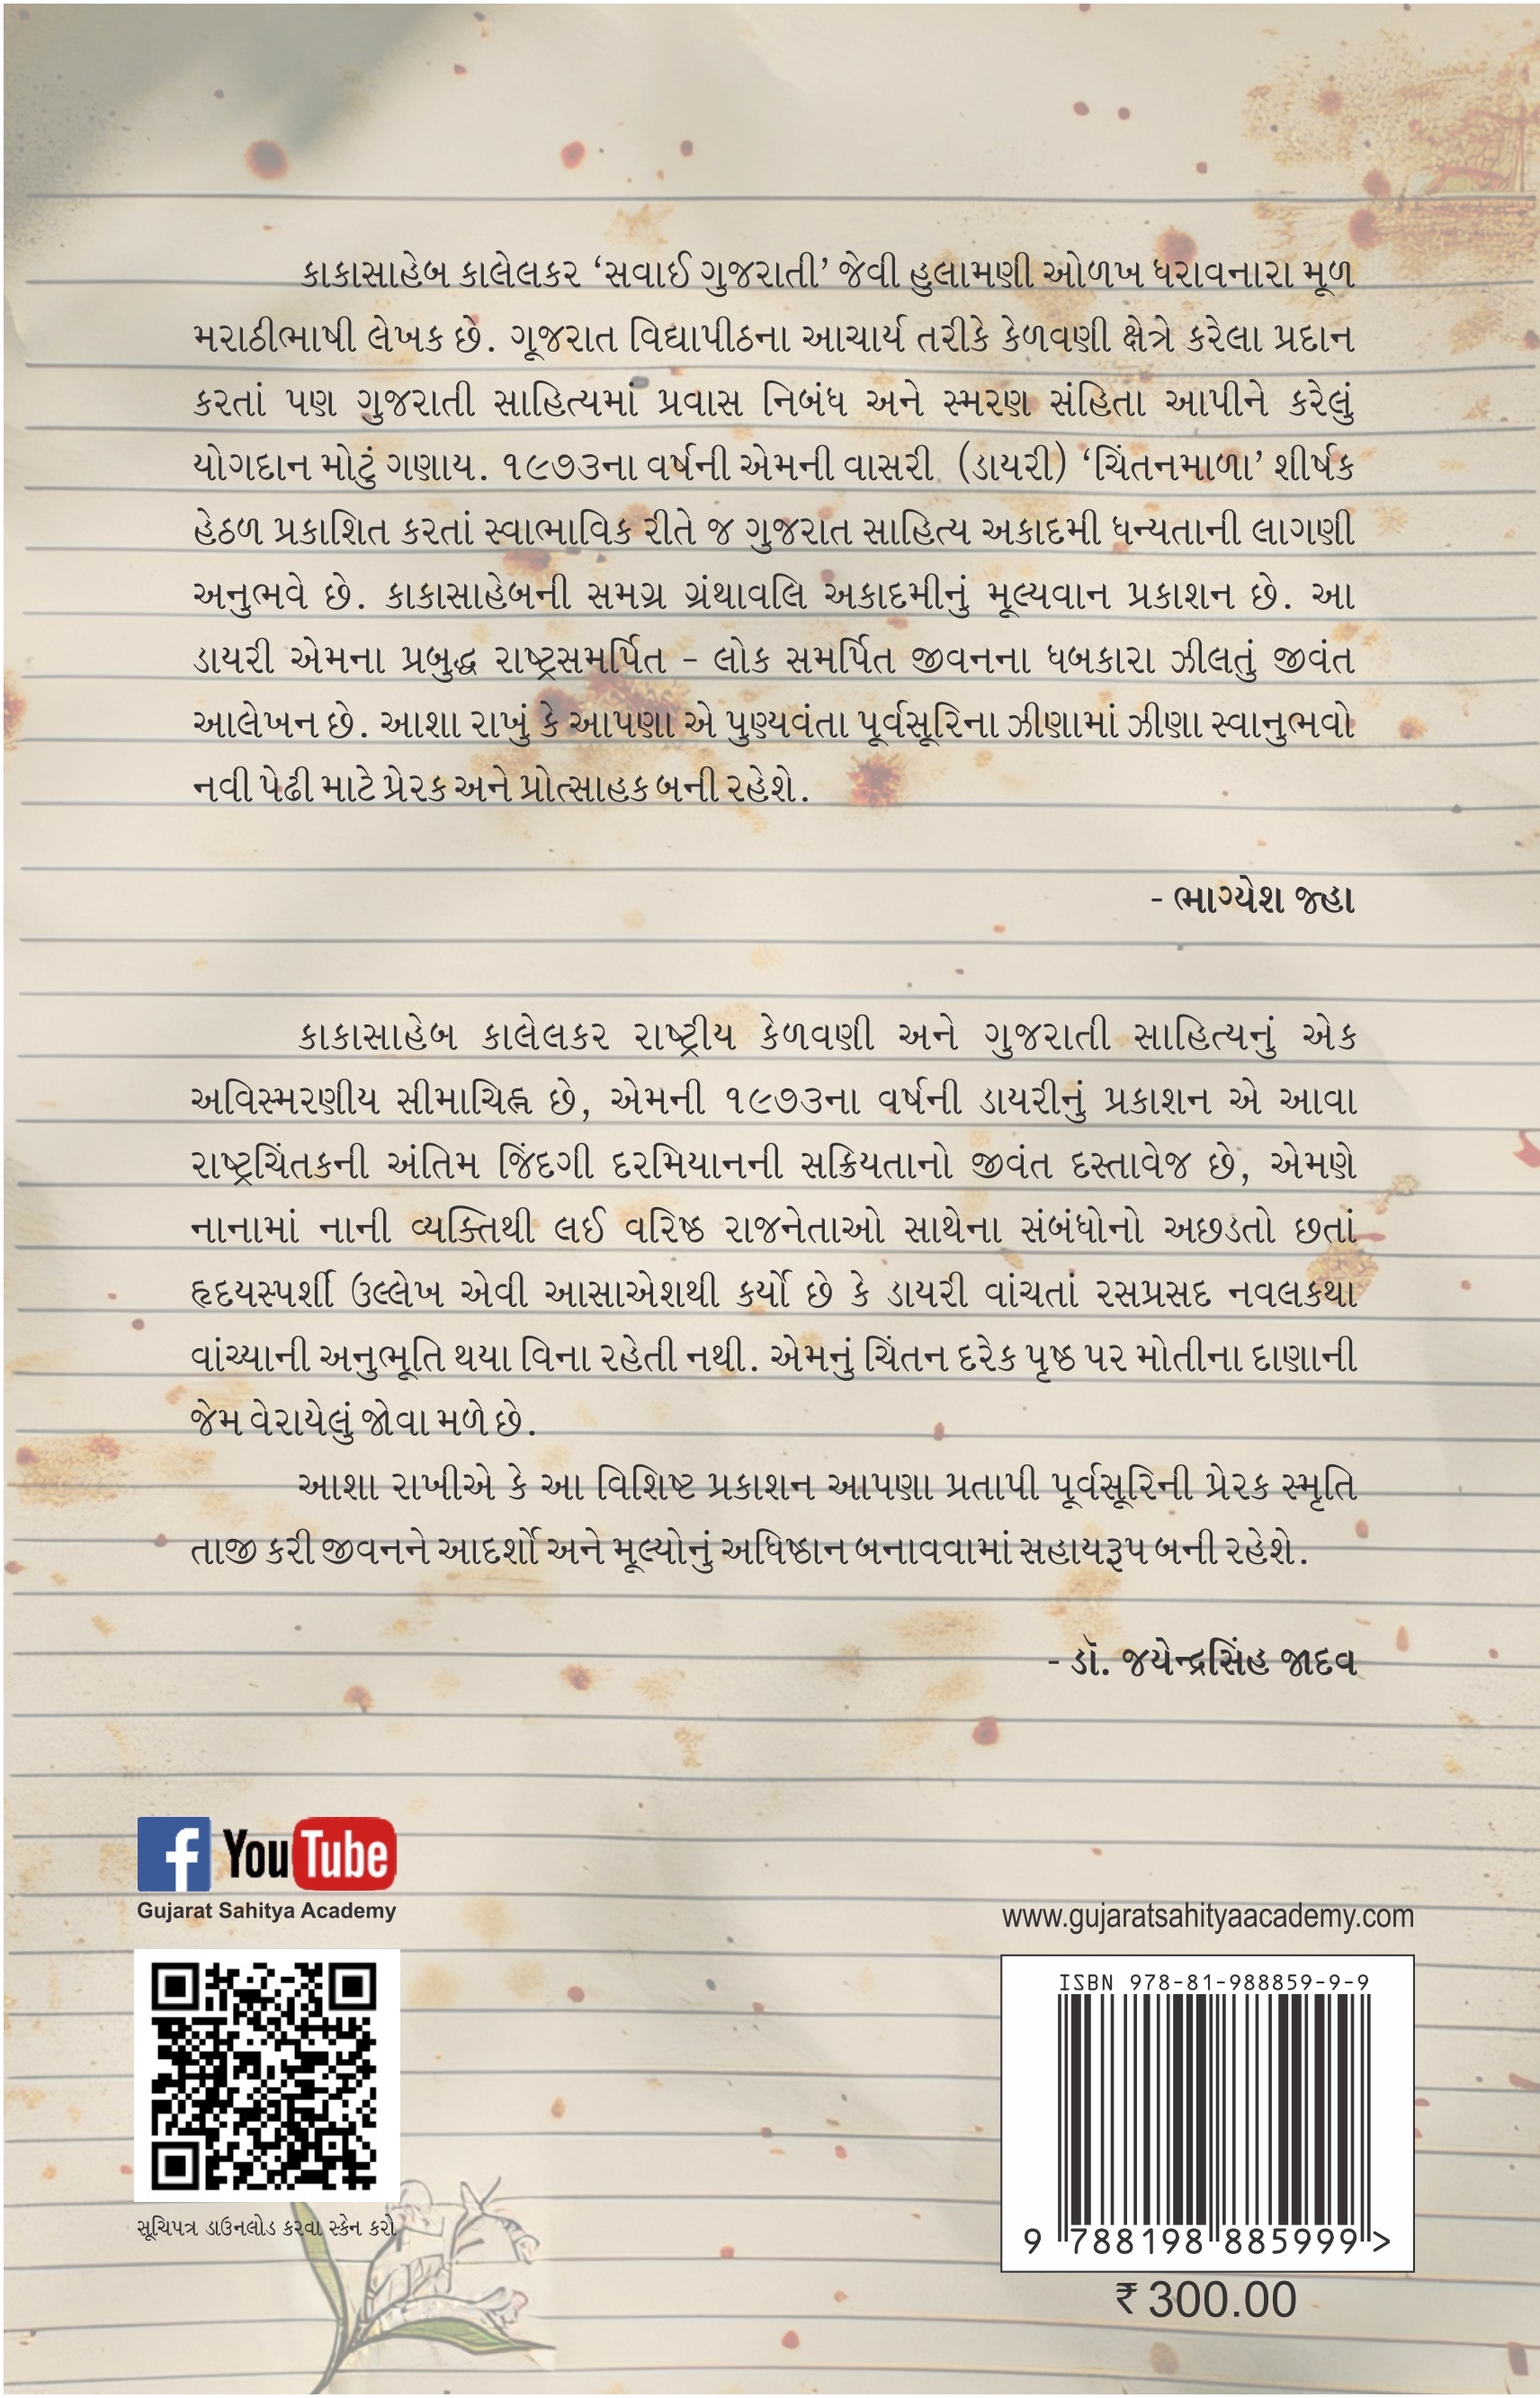 કાકાસાહેબ કાલેલકર ‘સવાઈ ગુજરાતી’ જેવી હુલામણી ઓળખ ધરાવનારા મૂળ
મરાઠીભાષી લેખક છે. ગૂજરાત વિદ્યાપીઠના આચાર્ય તરીકે કેળવણી ક્ષેત્રે કરેલા પ્રદાન
કરતાં પણ ગુજરાતી સાહિત્યમાં પ્રવાસ નિબંધ અને સ્મરણ સંહિતા આપીને કરેલું
યોગદાન મોટું ગણાય. ૧૯૭૩ના વર્ષની એમની વાસરી (ડાયરી) ‘ચિંતનમાળા’ શીર્ષક
હેઠળ પ્રકાશિત કરતાં સ્વાભાવિક રીતે જ ગુજરાત સાહિત્ય અકાદમી ધન્યતાની લાગણી
અનુભવે છે. કાકાસાહેબની સમગ્ર ગ્રંથાવલિ અકાદમીનું મૂલ્યવાન પ્રકાશન છે. આ
ડાયરી એમના પ્રબુદ્ધ રાષ્ટ્રસમર્પિત - લોક સમર્પિત જીવનના ધબકારા ઝીલતું જીવંત
આલેખન છે. આશા રાખું કે આપણા એ પુણ્યવંતા પૂર્વસૂરિના ઝીણામાં ઝીણા સ્વાનુભવો
નવી પેઢી માટે પ્રેરક અને પ્રોત્સાહક બની રહેશે.
- ભાગ્યેશ જ્હા
કાકાસાહેબ કાલેલકર રાષ્ટ્રીય કેળવણી અને ગુજરાતી સાહિત્યનું એક
અવિસ્મરણીય સીમાચિહ્ન છે, એમની ૧૯૭૩ના વર્ષની ડાયરીનું પ્રકાશન એ આવા
રાષ્ટ્રચિંતકની અંતિમ જિંદગી દરમિયાનની સક્રિયતાનો જીવંત દસ્તાવેજ છે, એમણે
નાનામાં નાની વ્યક્તિથી લઈ વરિષ્ઠ રાજનેતાઓ સાથેના સંબંધોનો અછડતો છતાં
હૃદયસ્પર્શી ઉલ્લેખ એવી આસાએશથી કર્યો છે કે ડાયરી વાંચતાં રસપ્રસદ નવલકથા
વાંચ્યાની અનુભૂતિ થયા વિના રહેતી નથી. એમનું ચિંતન દરેક પૃષ્ઠ પર મોતીના દાણાની
જેમ વેરાયેલું જોવા મળે છે.
આશા રાખીએ કે આ વિશિષ્ટ પ્રકાશન આપણા પ્રતાપી પૂર્વસૂરિની પ્રેરક સ્મૃતિ
તાજી કરી જીવનને આદર્શો અને મૂલ્યોનું અધિષ્ઠાન બનાવવામાં સહાયરૂપ બની રહેશે.
- ડૉ. જયેન્દ્રસિંહ જાદવ
f YouTube
Gujarat Sahitya Academy
સૂચિપત્ર ડાઉનલોડ કરવા સ્કેન કરો
www.gujaratsahityaacademy.com
ISBN 978-81-988859-9-9
9 788198 885999 >
₹ 300.00